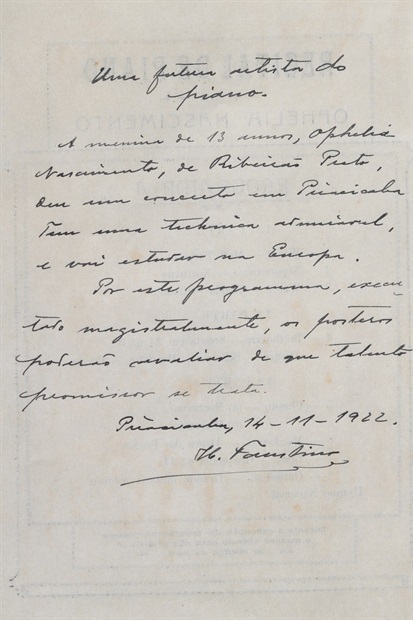 Uma futura artista do
piano.
A menina de 13 annos, Ophelia
Nascimento, de Ribeirão Preto,
deu um concerto em Piracicaba
Tem uma technica admiravel,
e vai estudar na Europa.
Por este programma, execu-
tado magistralmente, os posteros
poderão avaliar de que talento
promissor se trata.
Piracicaba, 14-11-1922.
H. Faustino
RECITAL DE PIANO
OPHELIA NASCIMENTO